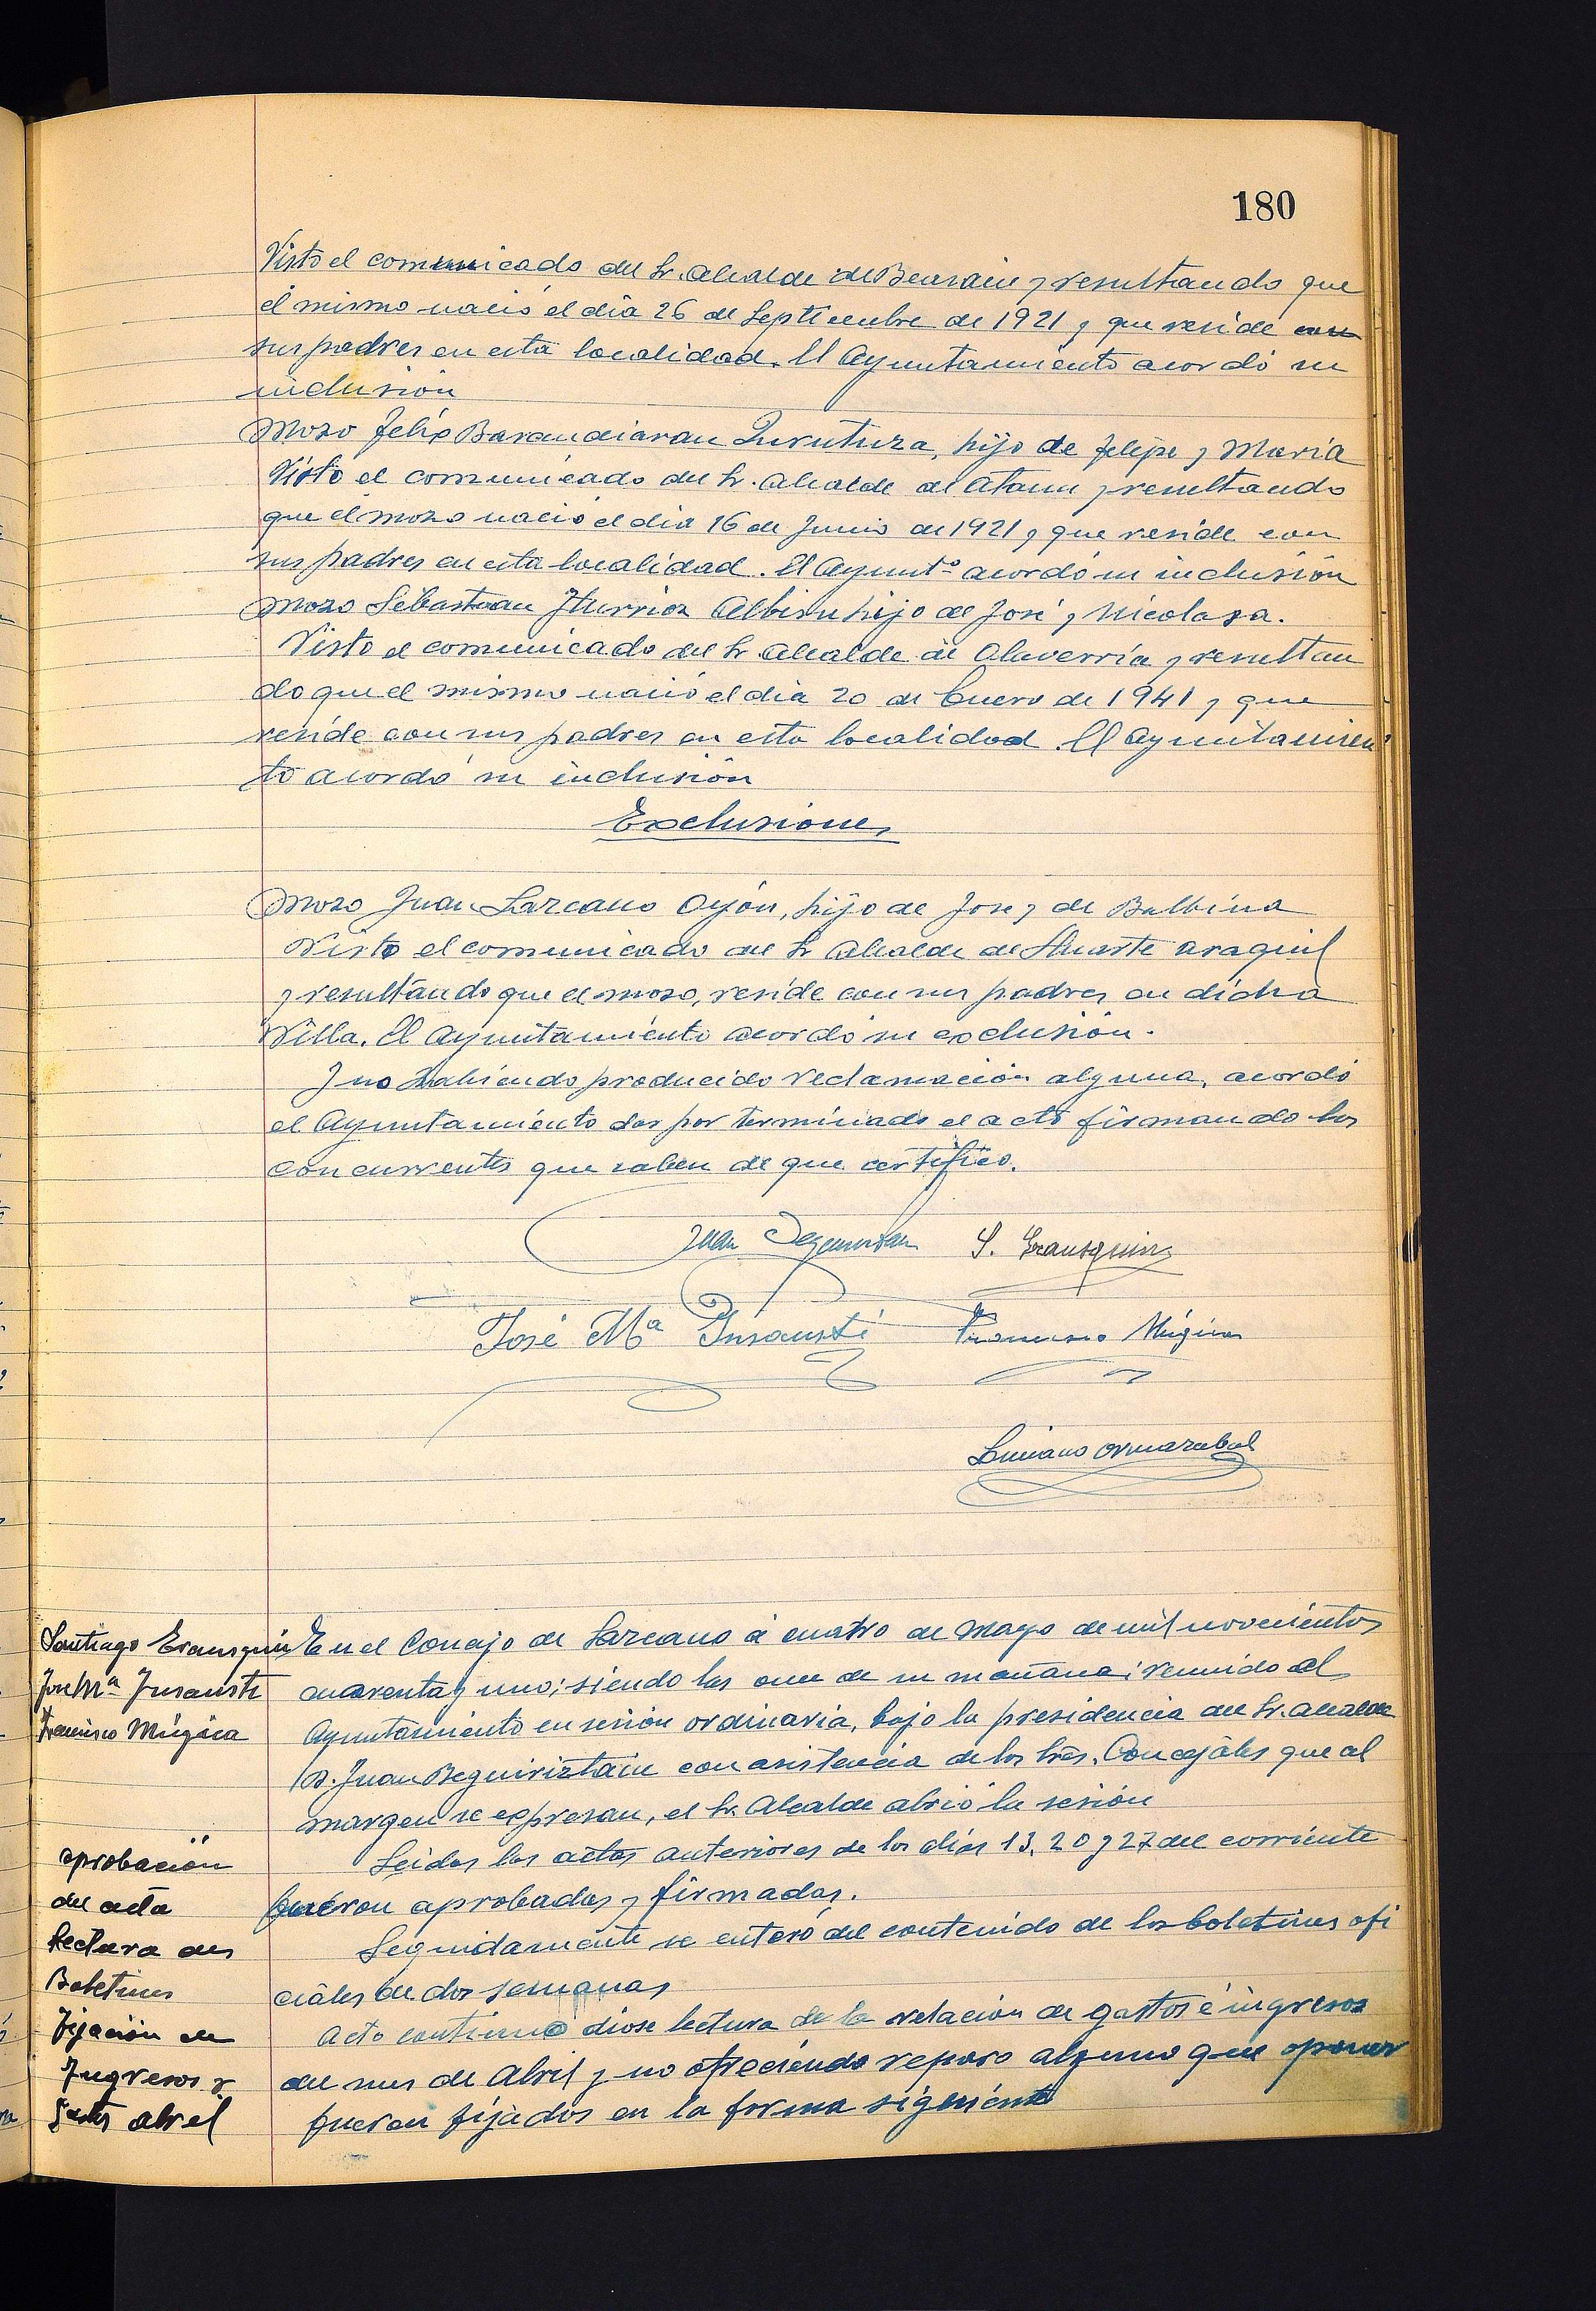 180
Visto el comunicado del Sr. Alcalde de Beasain y resultando que
el mismo nació el dia 26 de Septiembre de 1921 y que reside con
sus padres en esta localidad. El Ayuntamiento acordó su
inclusión
Mozo Felix Barandiaran, hijo de Felipe y Maria
Visto el comunicado del Sr. Alcalde de Ataun y resultando
que el mozo nació el dia 16 de Junio de 1921 y que reside con
sus padres en esta localidad. El Ayuntº acordó su inclusión
Mozo Sebastian Iturrioz Albisu hijo de José y Nicolasa.
Visto el comunicado del Sr. Alcalde de Olaverría y resultan
do que el mismo nació el dia 20 de Enero de 1941 y que
reside con sus padres en esta localidad. El Ayuntamien
to acordó su inclusión
Exclusiones
Mozo Juan Lazcano Oyón, hijo de Jose y de Balbina
Visto el comunicado del Sr Alcalde de Huarte araquil
y resultando que el mozo, reside con sus padres en dicha
Villa. El Ayuntamiento acordó su exclusión.
Y no habiendo producido reclamación alguna, acordó
el Ayuntamiento dar por terminado el acto firmando los
concurrentes que saben de que certifico.
Juan S. Erausquin
José Mª Insausti Francisco Múgica
Luciano Ormazabal
Santiago Erausquin
Jose Mª Insausti
Francisco Múgica
En el Concejo de Lazcano á cuatro de Mayo de mil novecientos
cuarenta y uno; siendo las once de su mañana; reunido el
Ayuntamiento en sesión ordinaria, bajo la presidencia del Sr. Alcalde
D. Juan Beguiristain con asistencia de los Sres. Concejales que al
margen se expresan, el Sr. Alcalde abrió la sesión
aprobación
del acta
Leidas las actas anteriores de los días 13, 20 y 27 del corriente
fueron aprobadas y firmadas.
Lectura de
Boletines
Seguidamente se enteró del contenido de los boletines ofi
ciales de dos semanas
Fijación de
Ingresos y
Gastos abril
Acto continuo diose lectura de la relación de gastos é ingresos
del mes de Abril y no ofreciendo reparo alguno que oponer
fueron fijados en la forma siguiente